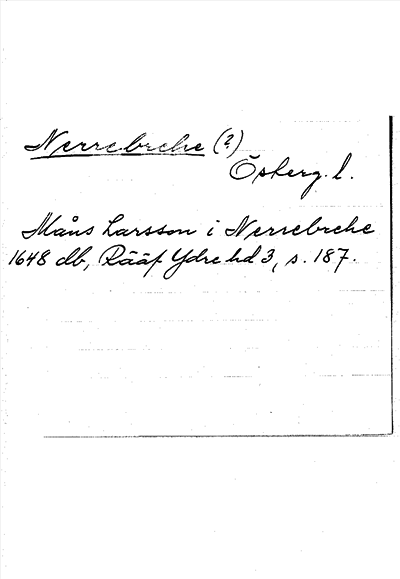 Nerrebrche (?)
Östergl.
Måns Larsson i Nerrebrche
1648 db, Rääf Ydre hd 3, s. 187.